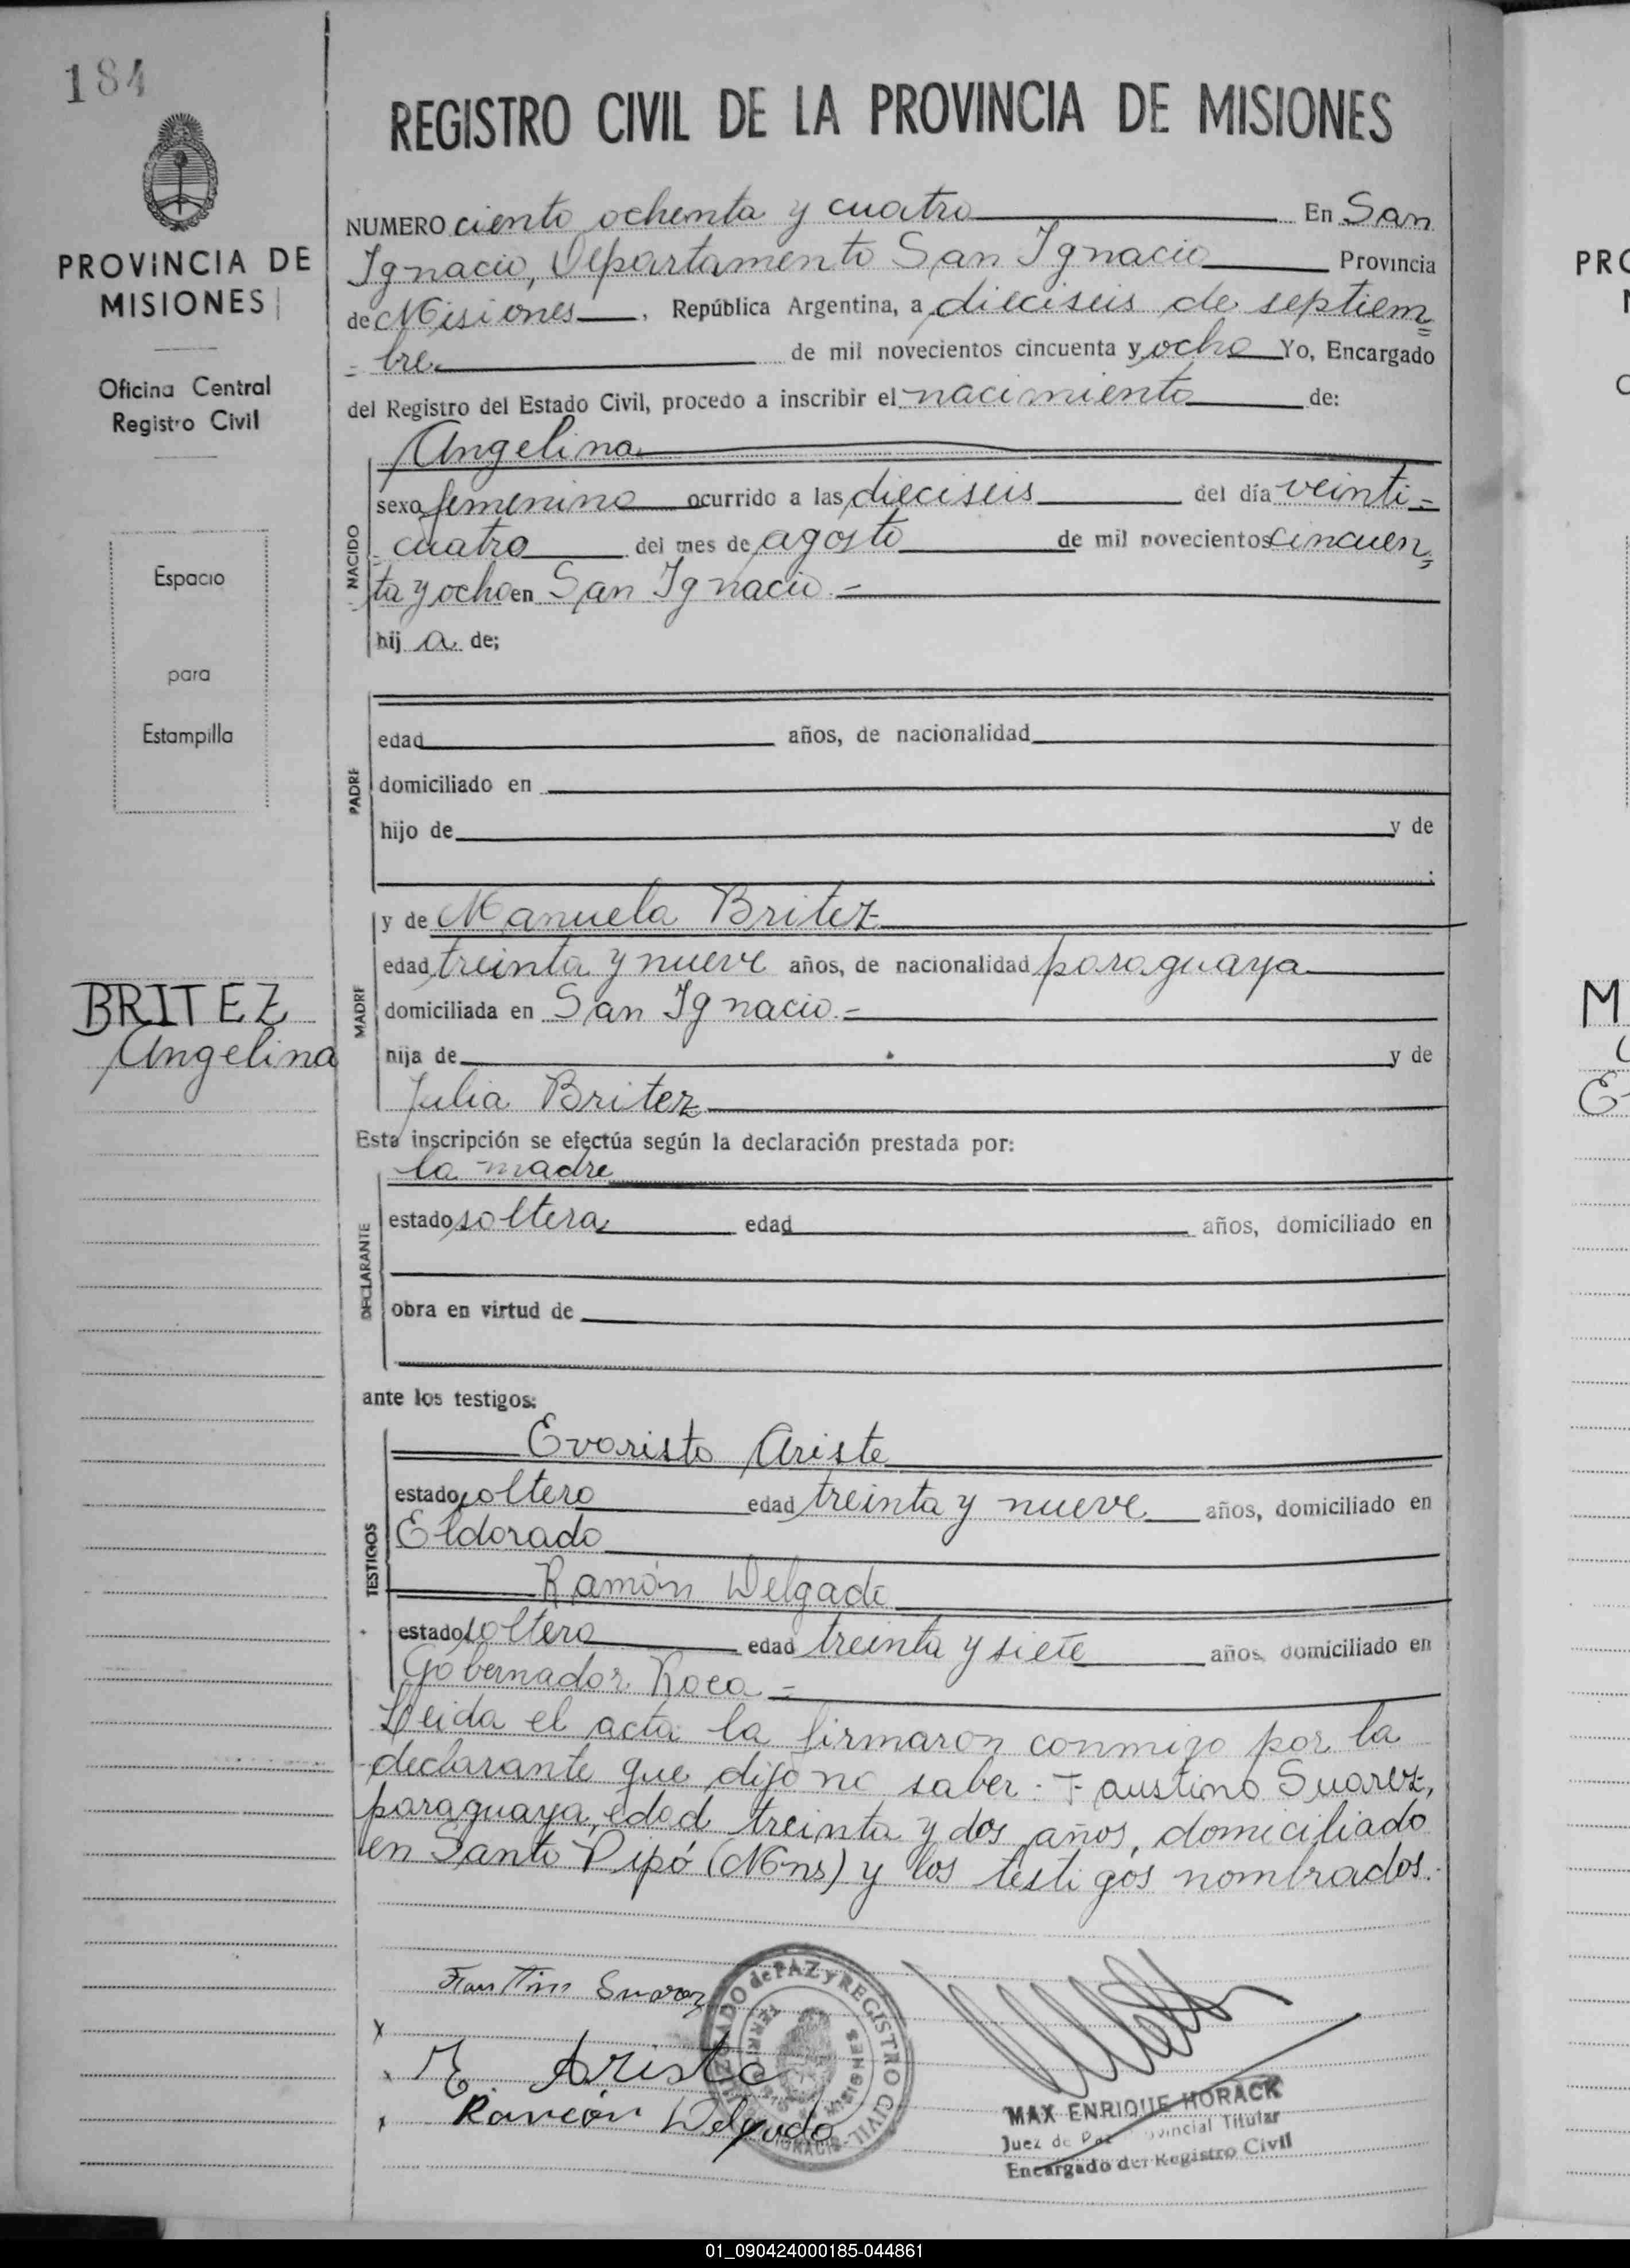 184
REGISTRO CIVIL DE LA PROVINCIA DE MISIONES
PROVINCIA DE
MISIONES
Oficina Central
Registro Civil
Espacio
para
Estampilla
BRITEZ
Angelina
NUMERO ciento ochenta y cuatro En San
Ignacio, Departamento San Ignacio Provincia
de Misiones, República Argentina, a dieciseis de septiem=
=bre de mil novecientos cincuenta y ocho Yo, Encargado
del Registro del Estado Civil, procedo a inscribir el nacimiento de:
NACIDO
Angelina
sexo femenino ocurrido a las dieciseis del día veinti=
=cuatro del mes de agosto de mil novecientos cincuen=
ta y ocho en San Ignacio.=
hij a de;
PADRE
edad años, de nacionalidad
domiciliado en
hijo de y de
;
MADRE
y de Manuela Britez
edad treinta y nueve años, de nacionalidad paraguaya
domiciliada en San Ignacio.=
hija de y de
Julia Britez
Esta inscripción se efectúa según la declaración prestada por:
DECLARANTE
la madre
estado soltera edad años, domiciliado en
obra en virtud de
ante los testigos:
TESTIGOS
Evaristo Ariste
estado soltero edad treinta y nueve años, domiciliado en
Eldorado
Ramón Delgado
estado soltero edad treinta y siete años, domiciliado en
Gobernador Roca.=
Leida el acta la firmaron conmigo por la
declarante que dijo no saber: Faustino Suarez,
paraguaya, edad treinta y dos años, domiciliado
en Santo Pipó (Mns) y los testigos nombrados.
Faustino Suarez
E. Aristo
Ramón Delgado
JUZGADO de PAZ y REGISTRO CIVIL
MISIONES
MAX ENRIQUE HORACK
Juez de Paz Provincial Titular
Encargado del Registro Civil
PRO
M
01_090424000185-044861